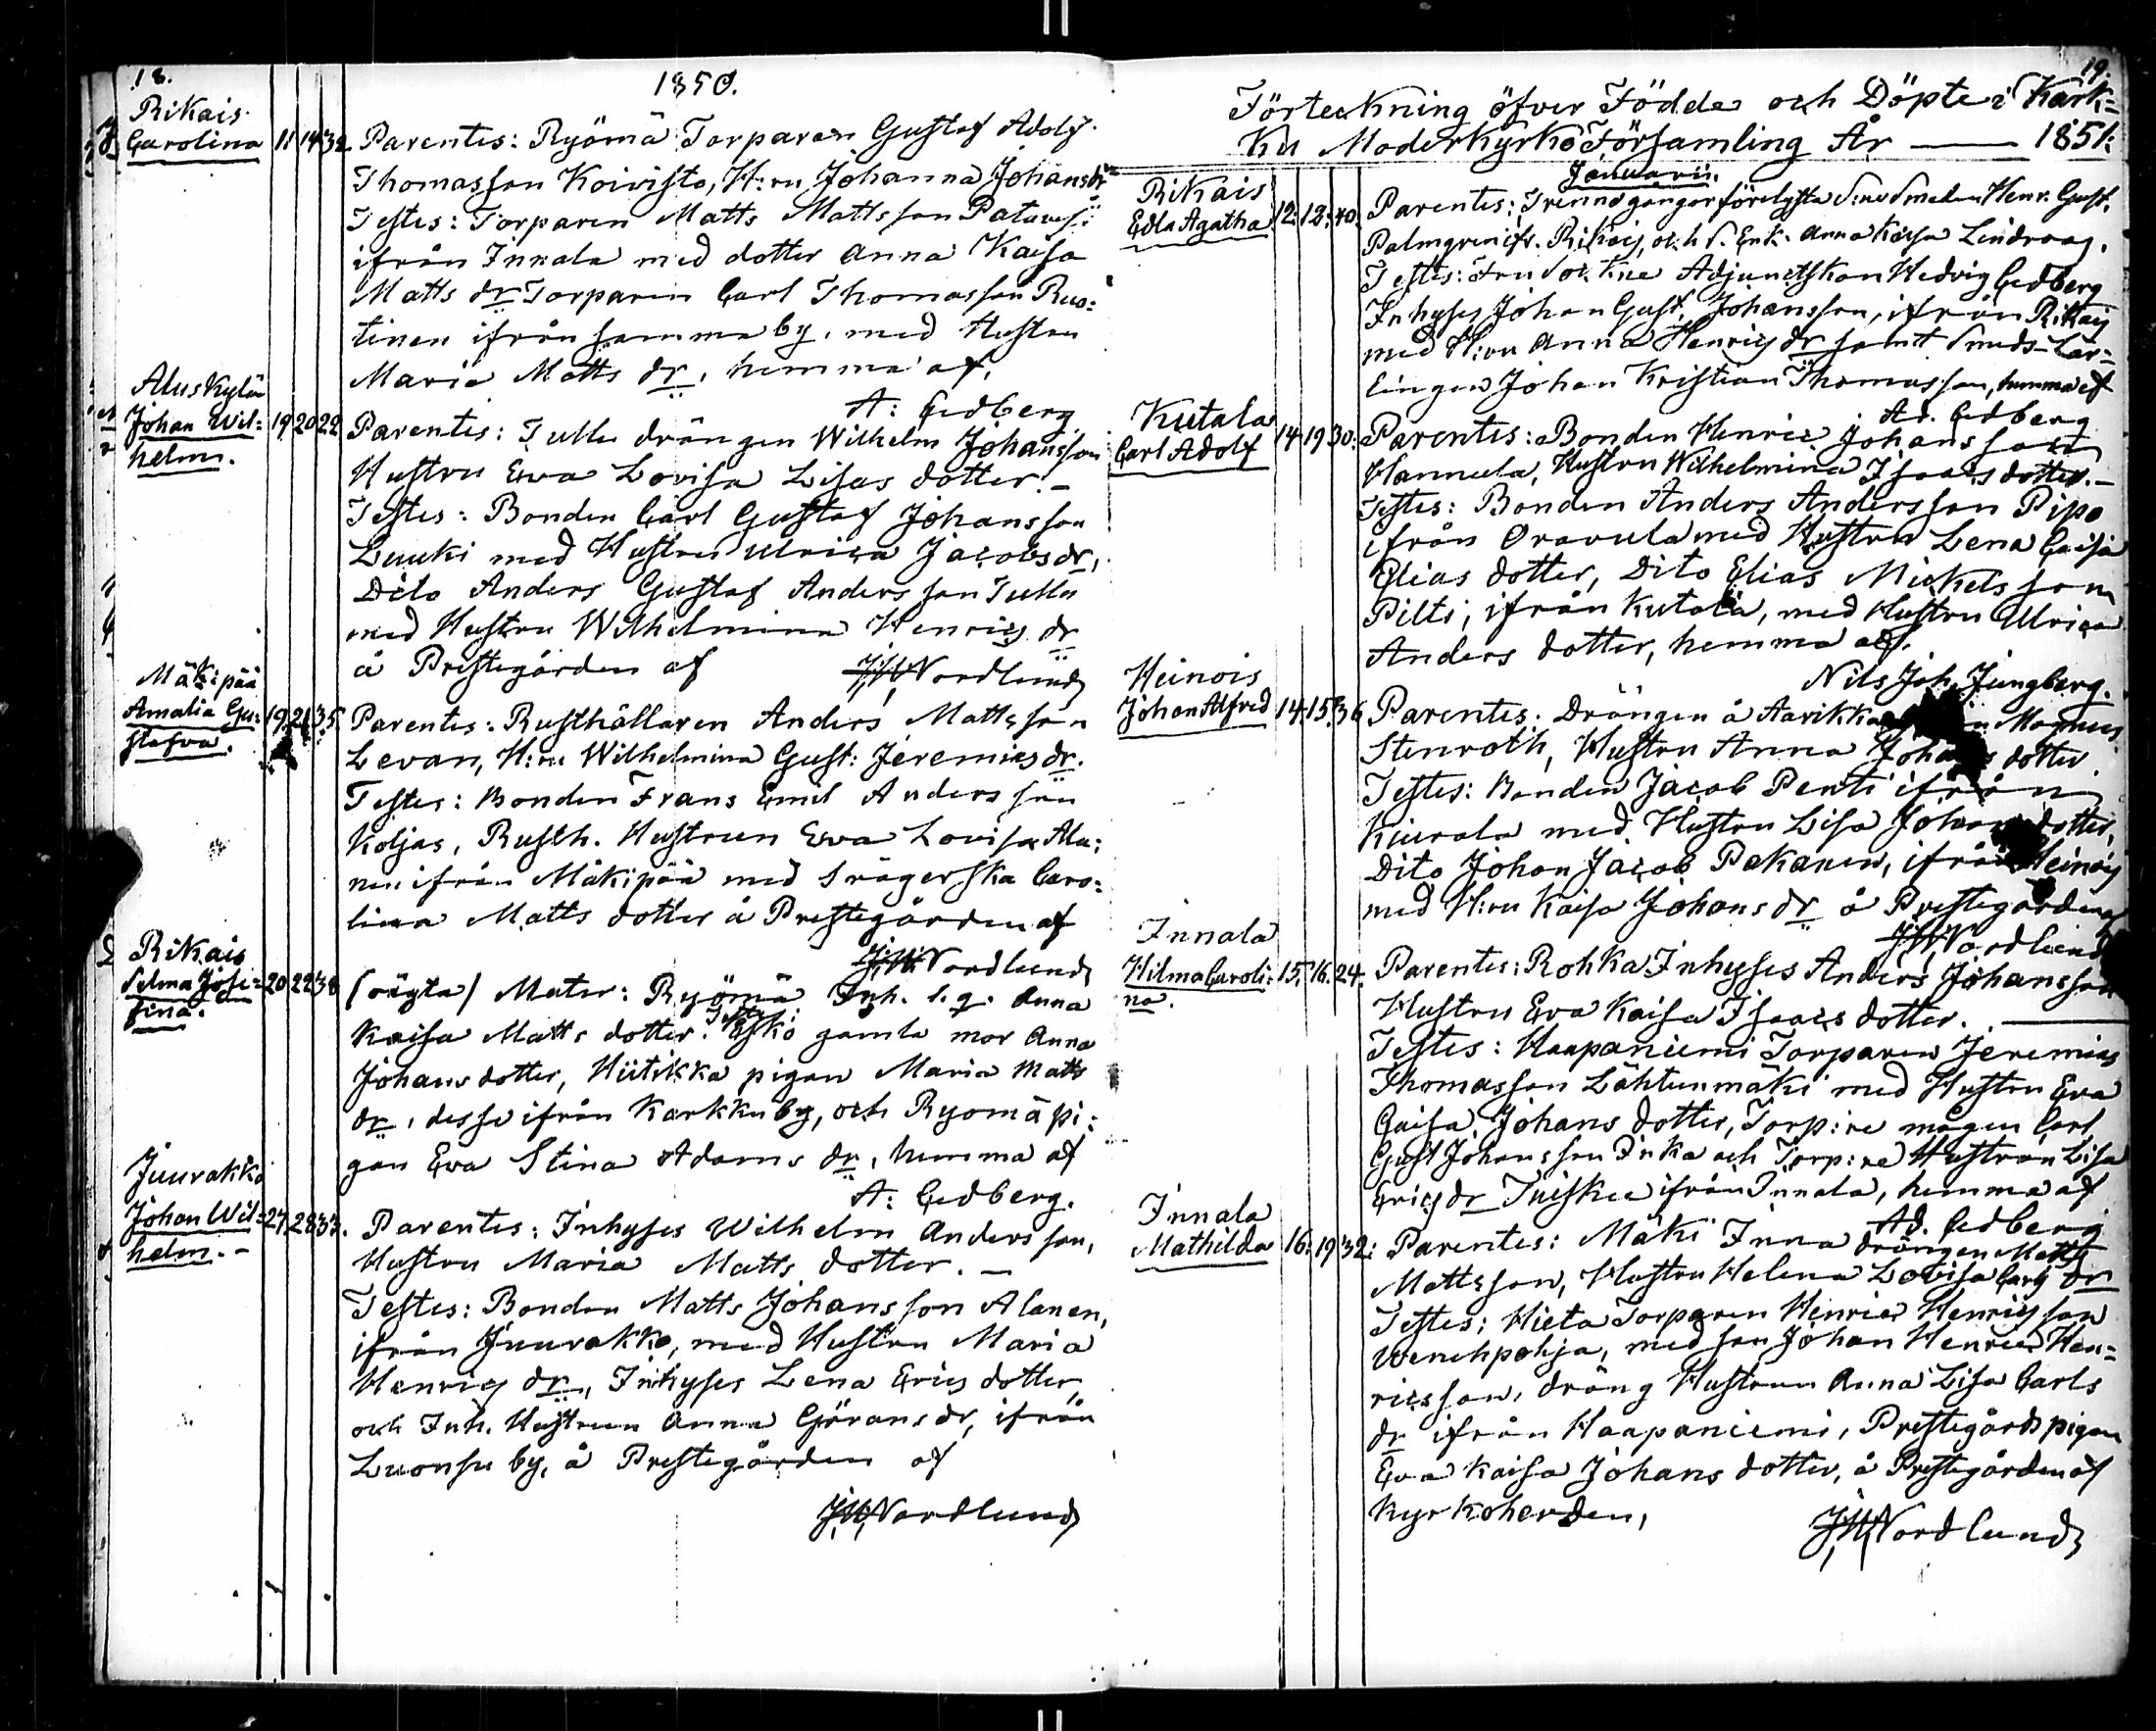 18.
1850.
Rikais
Carolina 11 14 32
Parentes: Ryömä Torparen Gustaf Adolf
Thomasson Koivisto, H:ru Johanna Johansdr
Testes: Torparen Matts Mattsson
ifrån Innala med dotter Anna Kaisa
Matts dr Torparen Carl Thomasson Rus=
tinen ifrån samma by, med Hustru
Maria Matts dr, hemma af,
A: Cedberg
Aluskylä
Johan Wil= 19 20 22
helm.
Parentes: Tulle drängen Wilhelm Johansson
Hustru Eva Lovisa Lisas dotter.–
Testes: Bonden Carl Gustaf Johansson
Luuki med Hustru Ulrica Jacobsdr,
Dito Anders Gustaf Andersson Tulla
med Hustru Wilhelmina Henrics dr
å Prestegården af JWNordlund
Mäkipää
Amalia Gu= 19 21 35
stafva.
Parentes: Rusthållaren Anders Mattsson
Levan, H:ru Wilhelmina Gust: Jeremiasdr.
Testes: Bonden Frans Emil Andersson
Koljas, Rusth. Hustrun Eva Lovisa Ala=
nen ifrån Mäkipää med Svägerska Caro=
lina Matts dotter å Prestegården af
JWNordlund
Rikais
Selma Jose= 20 22 38
fina.
(oägta) Mater: Ryömä Inh. l.q. Anna
Kaisa Matts dotter. Testes: Eskö gamla mor Anna
Johans dotter, Hiitikka pigan Maria Matts
dr, desse ifrån Karkku by, och Ryomä pi=
gan Eva Stina Adams dr, hemma af
A: Cedberg.
Juurakko
Johan Wil= 27 28 33.
helm.–
Parentes: Inhyses Wilhelm Andersson,
Hustru Maria Matts dotter.–
Testes: Bonden Matts Johansson Alanen,
ifrån Juurakko, med Hustru Maria
Henrics dr, Inhyses Lena Erics dotter,
och Inh. Hustrun Anna Görans dr, ifrån
Luonsu by, å Prestegården af
JWNordlund
19.
Förteckning öfver Födde och Döpte i Kark=
ku Moderkyrko Församling År — 1851.
Januarii.
Rikais
Edla Agatha 12. 12. 40.
Parentes: Trenne gånger förelysta Henr. Gust.
Palmgren ifr. Rikais, och Anna Kaisa
Testes: Fru Adjunctskan Hedvig Cedberg
Inhyses Johan Gust. Johansson, ifrån Rikais
med H:ru Anna Henrics dr samt Smeds Lär=
lingen Johan Kristian Thomasson, hemma af
Ad. Cedberg
Kutala
Carl Adolf 14 19 30.
Parentes: Bonden Henric Johansson
Hannula, Hustru Wilhelmina Isaacs dotter.–
Testes: Bonden Anders Andersson Pipo
ifrån Oravula med Hustru Lena Caisa
Elias dotter, Dito Elias Mickelsson
Pilti, ifrån Kutala, med Hustru Ulrica
Anders dotter, hemma af.
Nils Joh. Ljungberg.
Heinois
Johan Alfred 14. 15. 36
Parentes: Drängen å Aarikka Magnus
Stenroth, Hustru Anna Johans dotter
Testes: Bonden Jacob Penti ifrån
Kiurala med Hustru Lisa Johans dotter,
Dito Johan Jacob Pakanen, ifrån Heinois
med H:ru Kaisa Johans dr å Prestegården af
JWNordlund
Innala
Hilma Caroli= 15. 16. 24.
na.
Parentes: Rohka Inhyses Anders Johansson
Hustru Eva Kaisa Isaacs dotter. —
Testes: Haapaniemi Torparen Jeremias
Thomasson Lähteenmäki med Hustru Eva
Caisa Johans dotter, Torp:re mågen Carl
Gust Johansson Inka och Torp:re Hustrun Lisa
Erics dr ifrån Innala, hemma af
Ad. Cedberg
Innala
Mathilda 16. 19 32:
Parentes: Mäki Inna drängen Matts
Mattsson, Hustru Helena Lovisa Carls dr
Testes: Hieta Torparen Henric Henricsson
Wenehpohja, med son Johan Henric Hen=
ricsson, dräng Hustrun Anna Lisa Carls
dr ifrån Haapaniemi, Prestegårds pigan
Eva Kaisa Johans dotter, å Prestegården af
Kyrkoherden,
JWNordlund